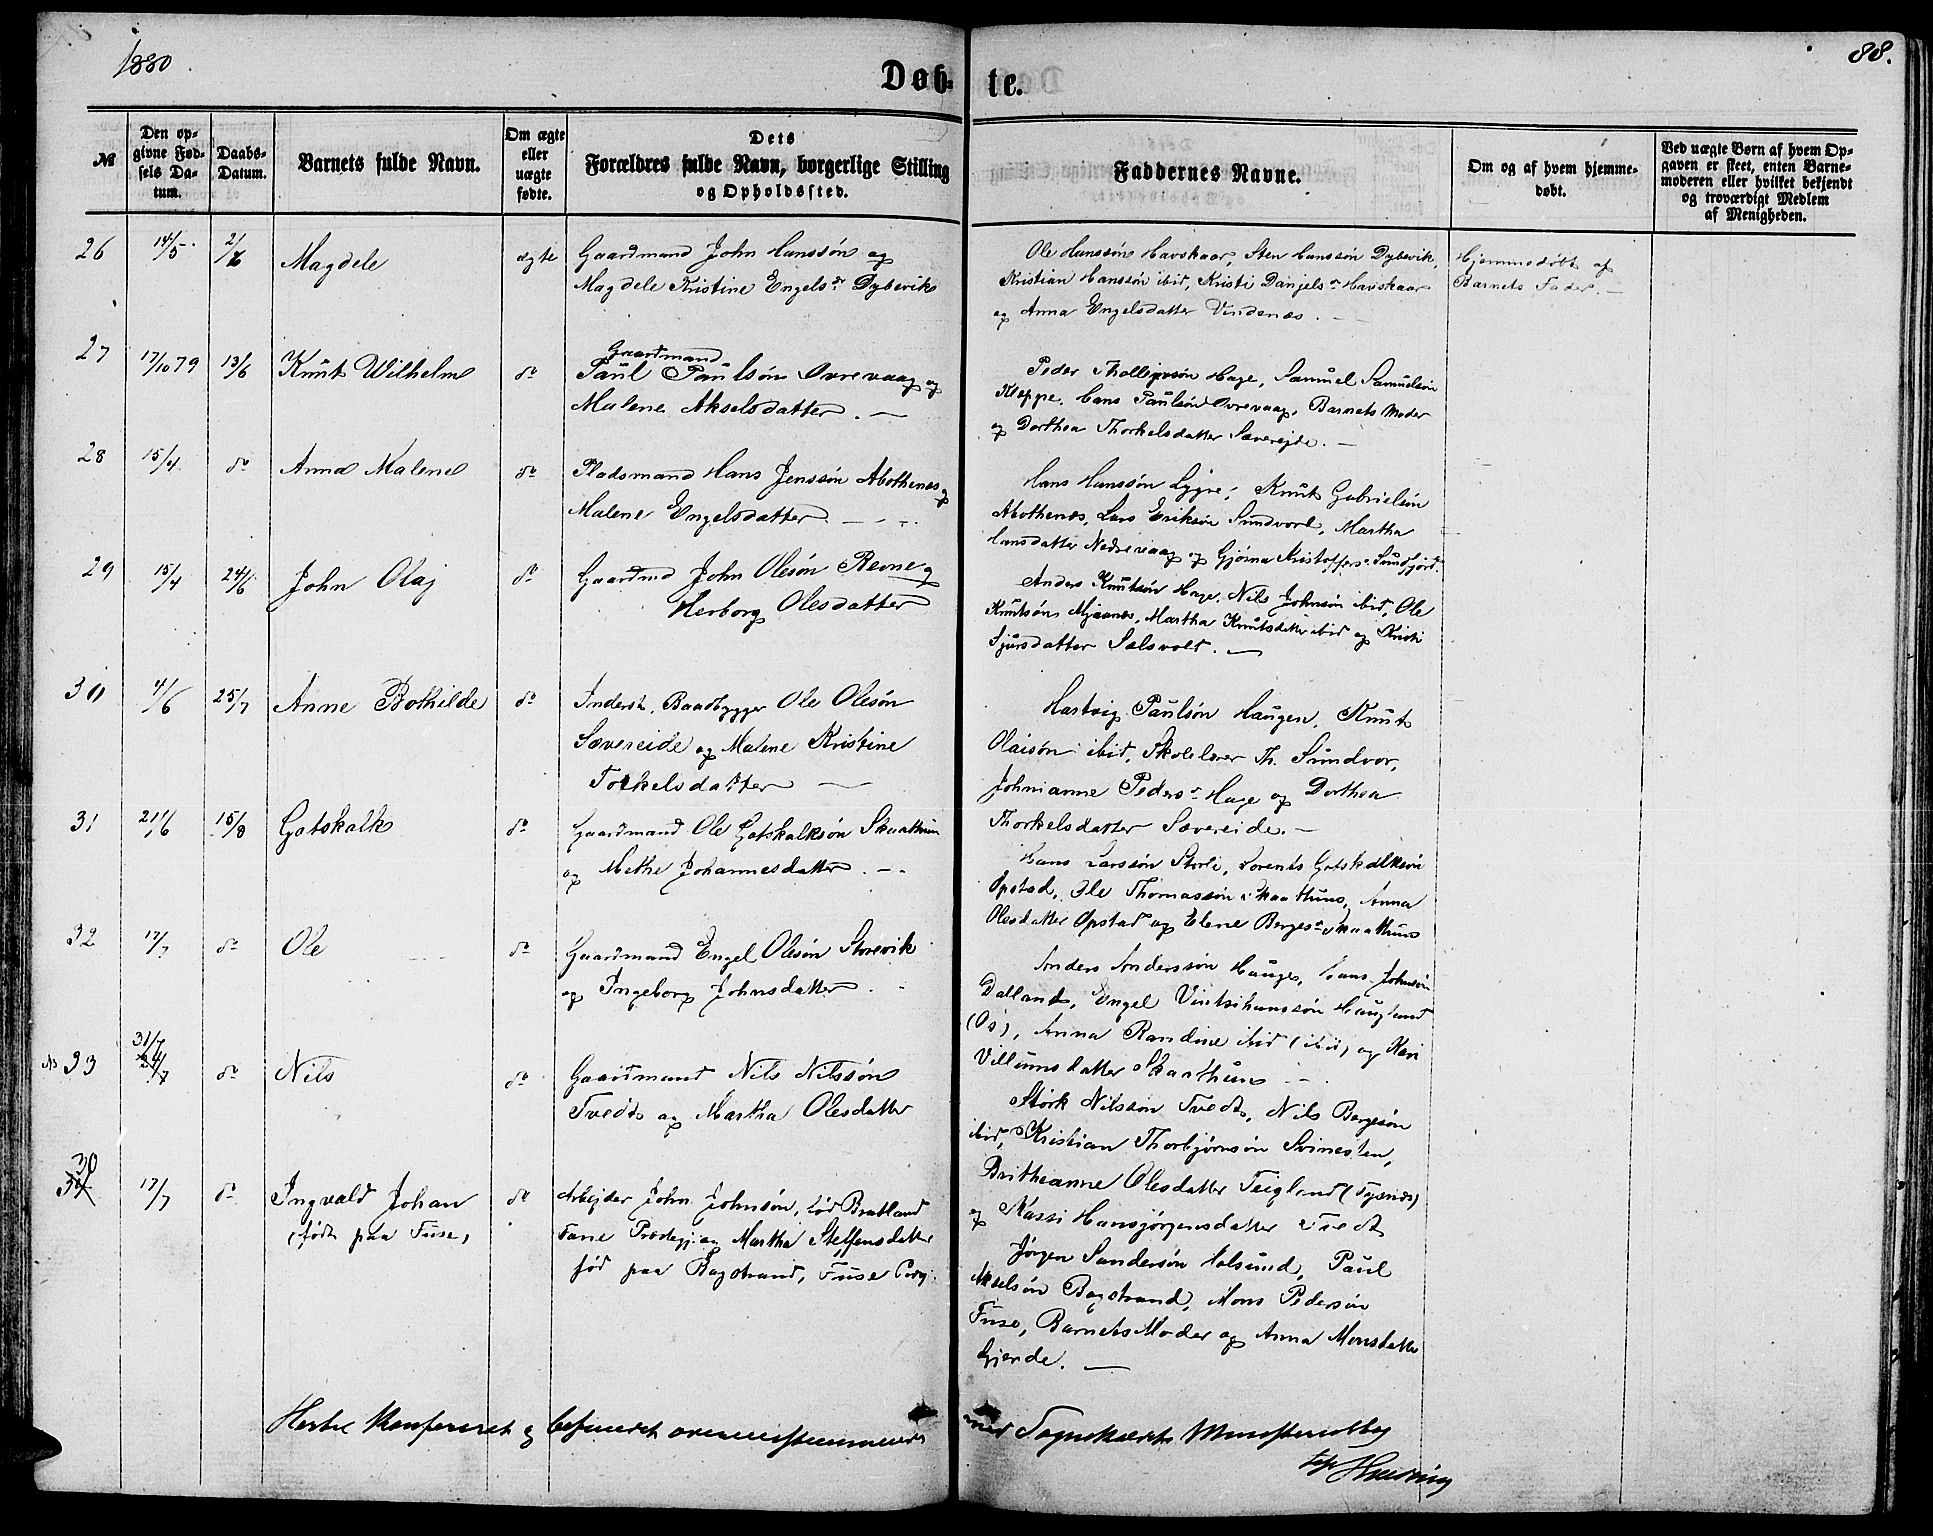 1880
88.
Døbte.
№
Den opgivne Fødsels Datum.
Daabs-Datum.
Barnets fulde Navn.
Om ægte eller uægte fødte.
Dets Forældres fulde Navn, borgerlige Stilling og Opholdssted.
Faddernes Navne.
Om og af hvem hjemmedøbt.
Ved uægte Børn af hvem Opgaven er skeet, enten Barnemoderen eller hvilket bekjendt og troværdigt Medlem af Menigheden.
26 14/5 2/6 Magdele ægte Gaardmand John Hanssön og
Magdele Kristine Engelsdr Dybevik
Ole Hanssön Havskaar, Sten Hanssön Dybevik,
Kristian Hanssön ibid, Kristi Danjelsdr Havskaar
og Anna Engelsdatter Vindenæs. —
Hjemmedöbt af
Barnets Fader. —
27 17/10 79 13/6 Knut Wilhelm do Gaardmand
Paul Paulsön Övrevaag og
Malene Akselsdatter. —
Peder Thollevsön Hage, Samuel Samuelsön
Kleppe, Hans Paulsön Övrevaag, Barnets Moder
og Dorthea Thorkelsdatter Sævereide. —
28 15/4 do Anna Malene do Pladsmand Hans Jenssön Abothenæs og
Malene Engelsdatter. —
Hans Hanssön Lygre, Knut Gabrielsön
Abothenæs, Lars Eriksön Sundvord, Martha
Hansdatter Nedrevaag og Gjörna Kristoffersdr Sundfjord.
29 15/4 24/6 John Olaj do Gaardmd John Olesön Revne og
Herborg Olesdatter
Anders Knutsön Hage, Nils Johnsön ibid, Ole
Knutsön Mjaanæs, Martha Knutsdatter ibid og Kristi
Sjursdatter Salsvolt. —
30 4/6 25/7 Anne Bothilde do Inderst, Baadbygger Ole Olesön
Sævereide og Malene Kristine
Torkelsdatter —
Hartvig Paulsön Haugen, Knut
Olaisön ibid, Skolelærer Th. Sundvor,
Johnianne Pedersdr Hage og Dorthea
Thorkelsdatter Sævereide. —
31 21/6 15/8 Gotskalk do Gaardmand Ole Gotskalksön Skaathun
og Methe Johannesdatter. —
Hans Larssön Storli, Lorents Gotskalksön
Opstad, Ole Thomassön Skaathun, Anna
Olesdatter Opstad og Elene Børgesdr Skaathun
32 17/7 do Ole do Gaardmand Engel Olesön Storevik
og Ingeborg Johnsdatter.
Anders Anderssön Hauge, Hans Johnsön
Dalland, Engel Haugland
(Os), Anna Randine ibid (ibid) og Kari
Villumsdatter Skaathun —
No 33 31/7 24/7 do Nils do Gaardmand Nils Nilssön
Tvedt og Martha Olesdatter
Störk Nilssön Tvedt, Nils Børgesön
ibid, Kristian Thorbjörnsön Svinesten,
Britheanne Olesdatter Teigland (Tysnæs)
og Kassi Hansjörgensdatter Tvedt
30
34 17/7 do Ingvald Johan
(födt paa Fuse) do Arbejder John Johnsön, föd Bratland
Fane Prestegj og Martha Steffensdatter
föd paa Bogstrand, Fuse Prgj.
Jörgen Sandersön Holsund, Paul
Akselsön Bogstrand, Mons Pedersön
Fuse, Barnets Moder og Anna Monsdatter
Gjerde. —
Hertil Konfereret og befundet overensstemmende
med Sogneskaldets Ministerialbog